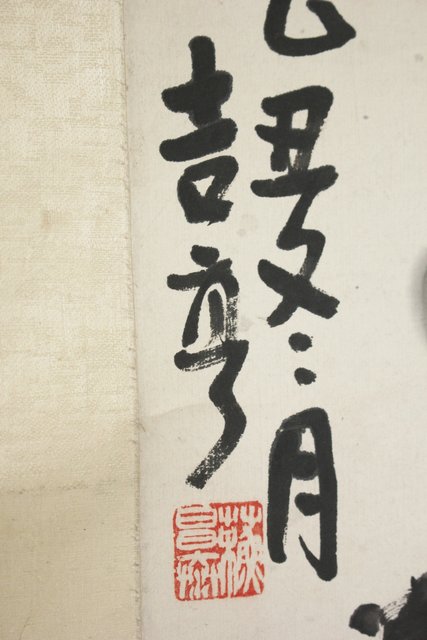 乙丑冬月
吉亭